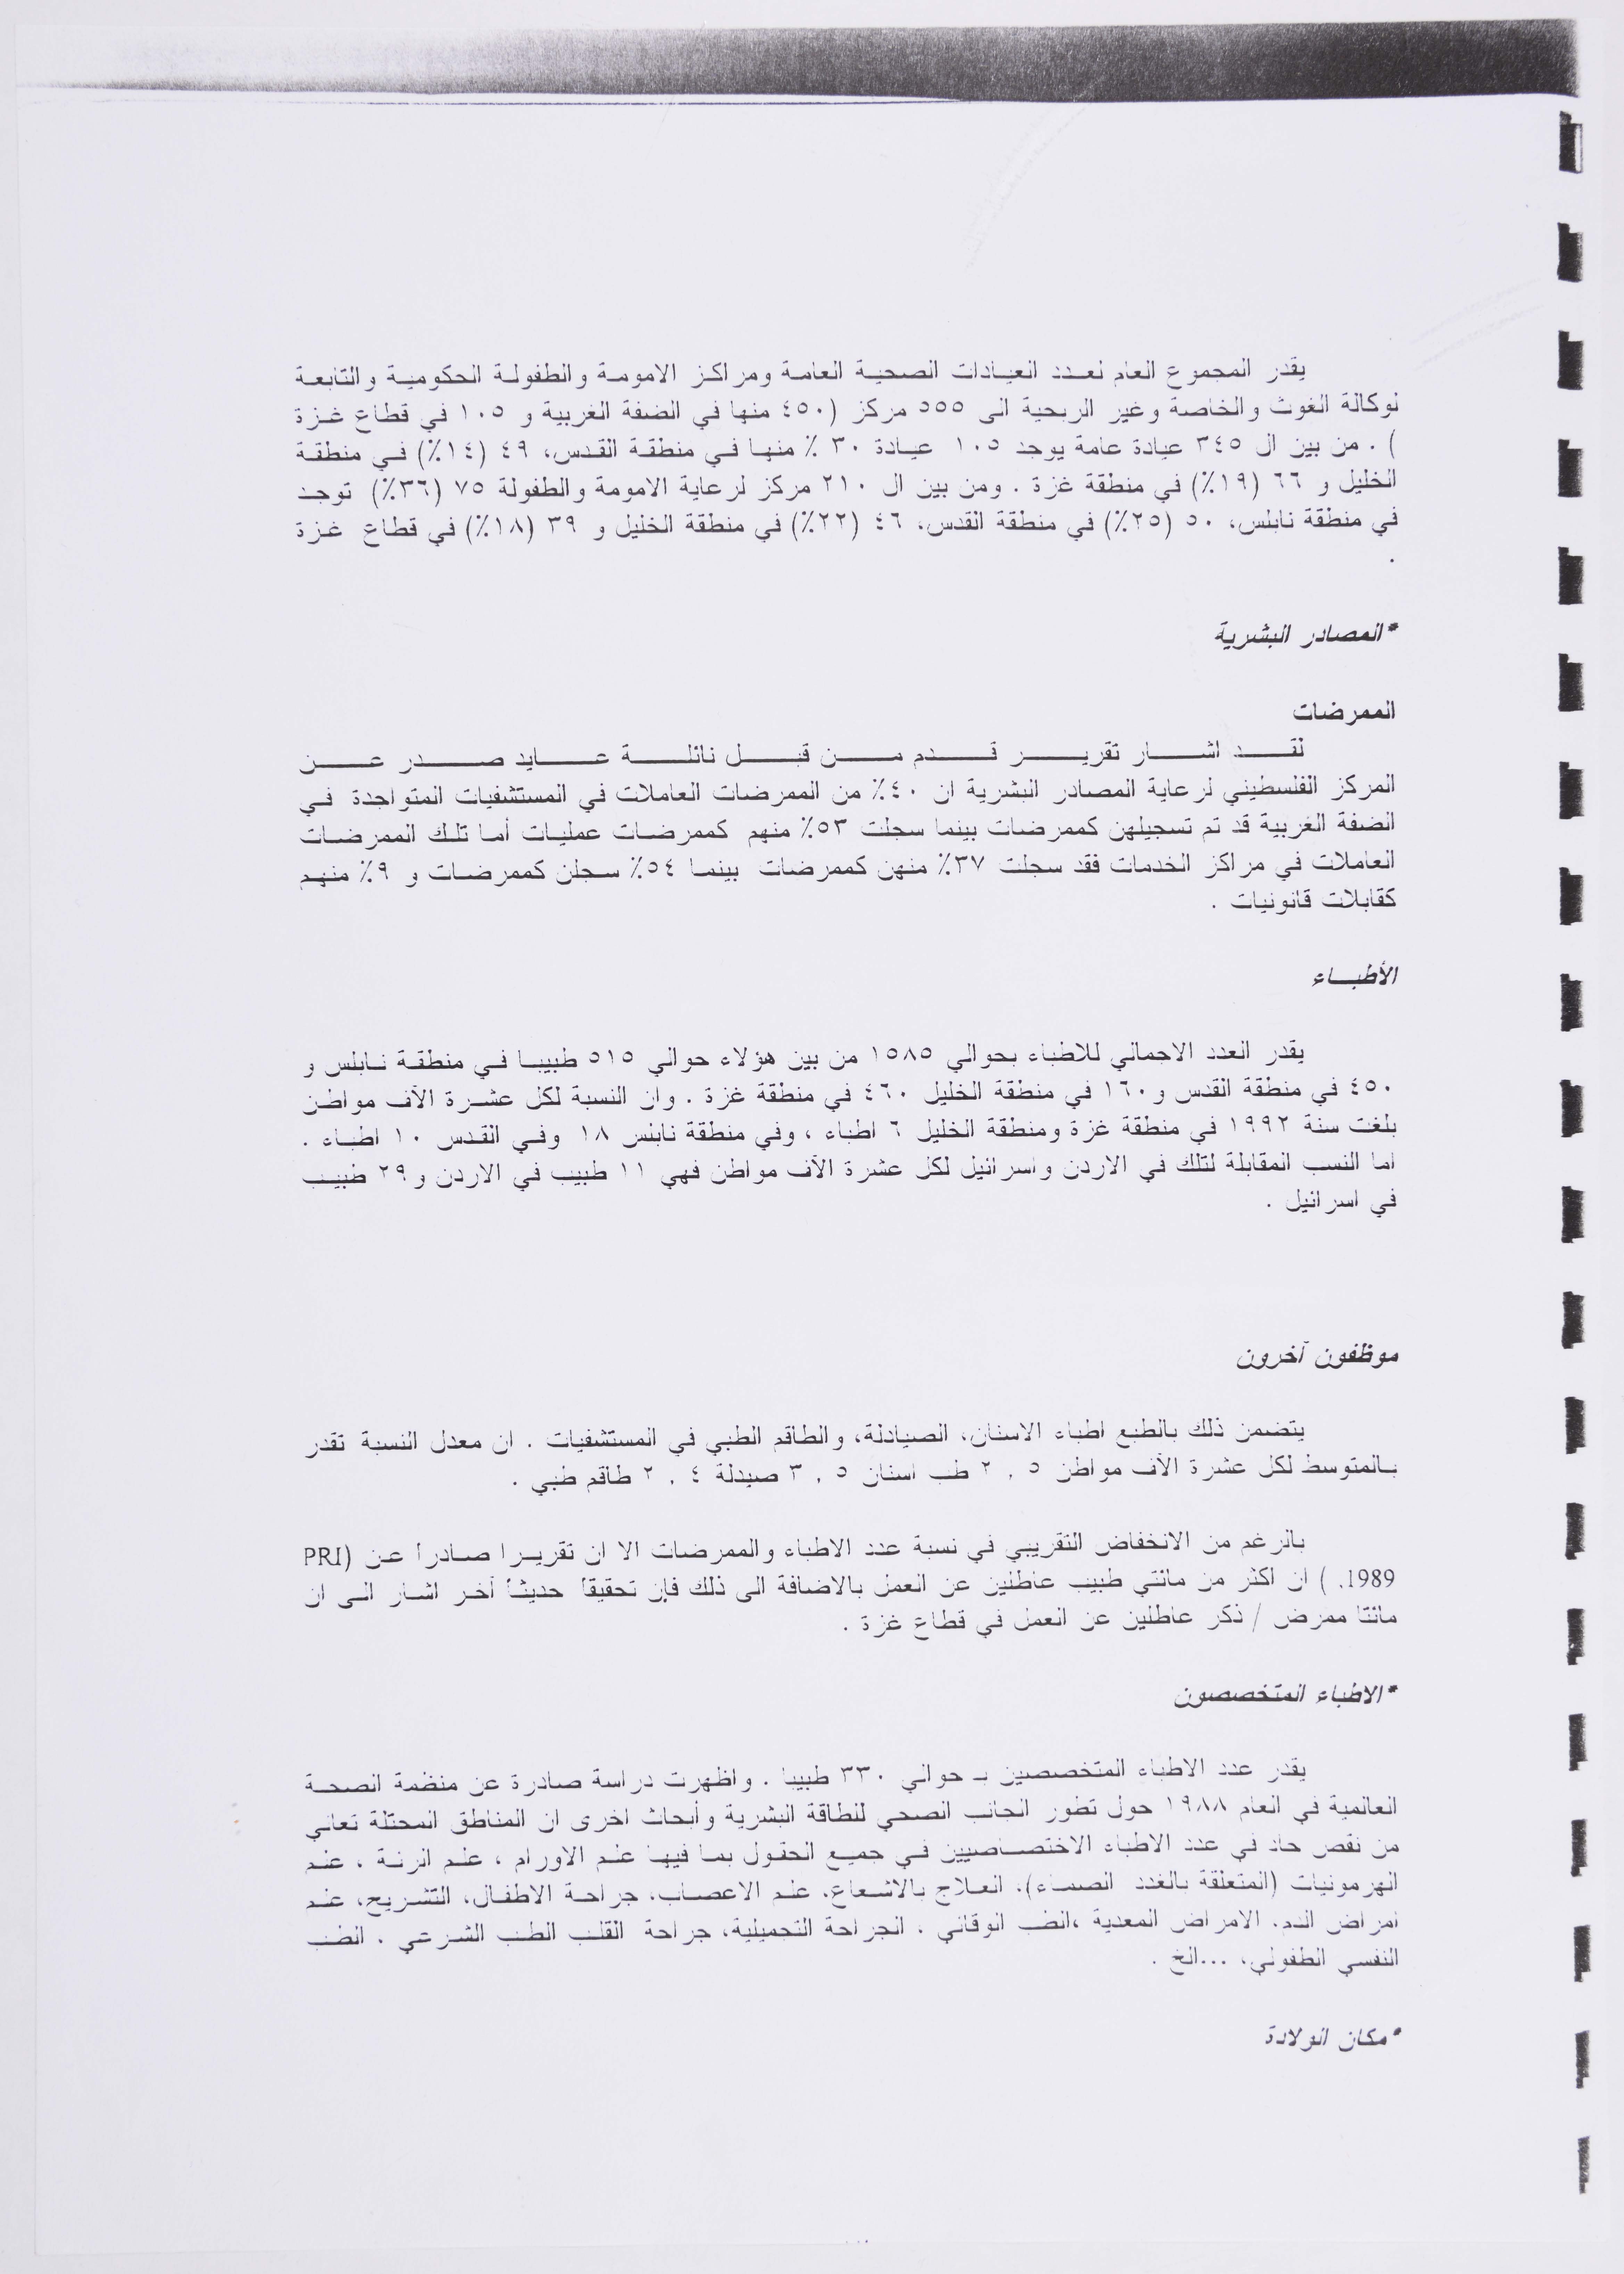 يقدر المجموع العام لعدد العيادات الصحية العامة ومراكز الامومة والطفولة الحكومية والتابعة
لوكالة الغوث والخاصة وغير الربحية الى ٥٥٥ مركز (٤٥٠ منها في الضفة الغربية و ١٠٥ في قطاع غزة
) . من بين ال ٣٤٥ عيادة عامة يوجد ١٠٥ عيادة ٣٠ ٪ منها في منطقة القدس، ٤٩ (١٤٪) في منطقة
الخليل و ٦٦ (١٩٪) في منطقة غزة . ومن بين ال ٢١٠ مركز لرعاية الامومة والطفولة ٧٥ (٣٦٪) توجد
في منطقة نابلس، ٥٠ (٢٥٪) في منطقة القدس، ٤٦ (٢٢٪) في منطقة الخليل و ٣٩ (١٨٪) في قطاع غزة
.
*المصادر البشرية
الممرضات
لقد اشار تقرير قدم من قبل نائلة عايد صدر عن
المركز الفلسطيني لرعاية المصادر البشرية ان ٤٠٪ من الممرضات العاملات في المستشفيات المتواجدة في
الضفة الغربية قد تم تسجيلهن كممرضات بينما سجلت ٥٣٪ منهم كممرضات عمليات أما تلك الممرضات
العاملات في مراكز الخدمات فقد سجلت ٣٧٪ منهن كممرضات بينما ٥٤٪ سجلن كممرضات و ٩٪ منهم
كقابلات قانونيات .
الأطباء
يقدر العدد الاجمالي للاطباء بحوالي ١٥٨٥ من بين هؤلاء حوالي ٥١٥ طبيبا في منطقة نابلس و
٤٥٠ في منطقة القدس و١٦٠ في منطقة الخليل ٤٦٠ في منطقة غزة . وان النسبة لكل عشرة الآف مواطن
بلغت سنة ١٩٩٢ في منطقة غزة ومنطقة الخليل ٦ اطباء ، وفي منطقة نابلس ١٨ وفي القدس ١٠ اطباء .
اما النسب المقابلة لتلك في الاردن واسرائيل لكل عشرة الآف مواطن فهي ١١ طبيب في الاردن و٢٩ طبيب
في اسرائيل .
موظفون آخرون
يتضمن ذلك بالطبع اطباء الاسنان، الصيادلة، والطاقم الطبي في المستشفيات . ان معدل النسبة تقدر
بالمتوسط لكل عشرة الآف مواطن ٥ , ٢ طب اسنان ٥ , ٣ صيدلة ٤ , ٢ طاقم طبي .
بالرغم من الانخفاض التقريبي في نسبة عدد الاطباء والممرضات الا ان تقريرا صادرا عن (PRI
1989. ) ان اكثر من مائتي طبيب عاطلين عن العمل بالاضافة الى ذلك فإن تحقيقا حديثا آخر اشار الى ان
مائتا ممرض / ذكر عاطلين عن العمل في قطاع غزة .
*الاطباء المتخصصون
يقدر عدد الاطباء المتخصصين بـ حوالي ٣٣٠ طبيبا . واظهرت دراسة صادرة عن منظمة الصحة
العالمية في العام ١٩٨٨ حول تطور الجانب الصحي للطاقة البشرية وأبحاث اخرى ان المناطق المحتلة تعاني
من نقص حاد في عدد الاطباء الاختصاصيين في جميع الحقول بما فيها علم الاورام ، علم الرئة ، علم
الهرمونيات (المتعلقة بالغدد الصماء)، العلاج بالاشعاع، علم الاعصاب، جراحة الاطفال، التشريح، علم
امراض الدم، الامراض المعدية ،الطب الوقائي ، الجراحة التجميلية، جراحة القلب الطب الشرعي ، الطب
النفسي الطفولي، ...الخ .
*مكان الولادة